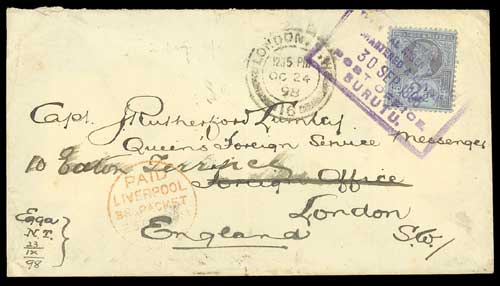 LONDON. S.W.
12.15 PM
OC 24
98
16
CHARTERED
30 SEP
POST OFFICE
BURUTU.
Capt. J. Rutherford Lumley
Queen's Foreign Service Messenger
10 Eaton Terrace
Foreign Office
London
England S.W./
PAID
LIVERPOOL
BR. PACKET
Egga
N.T.
23
IX
98